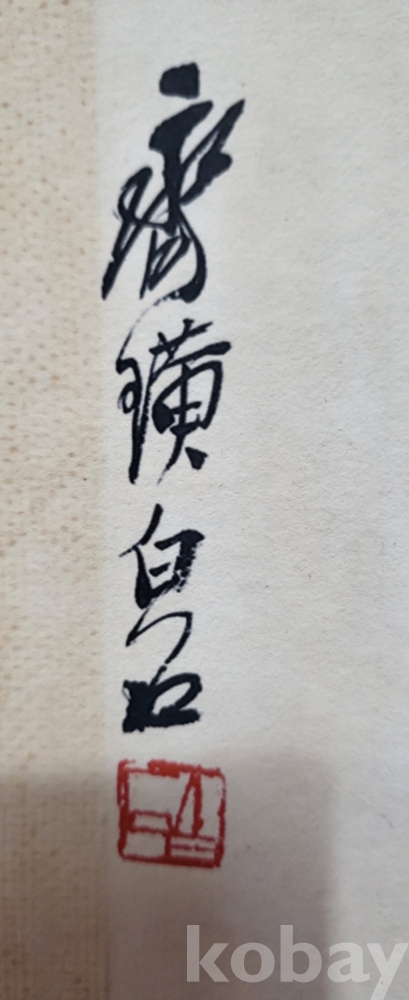 齊璜白石
kobay